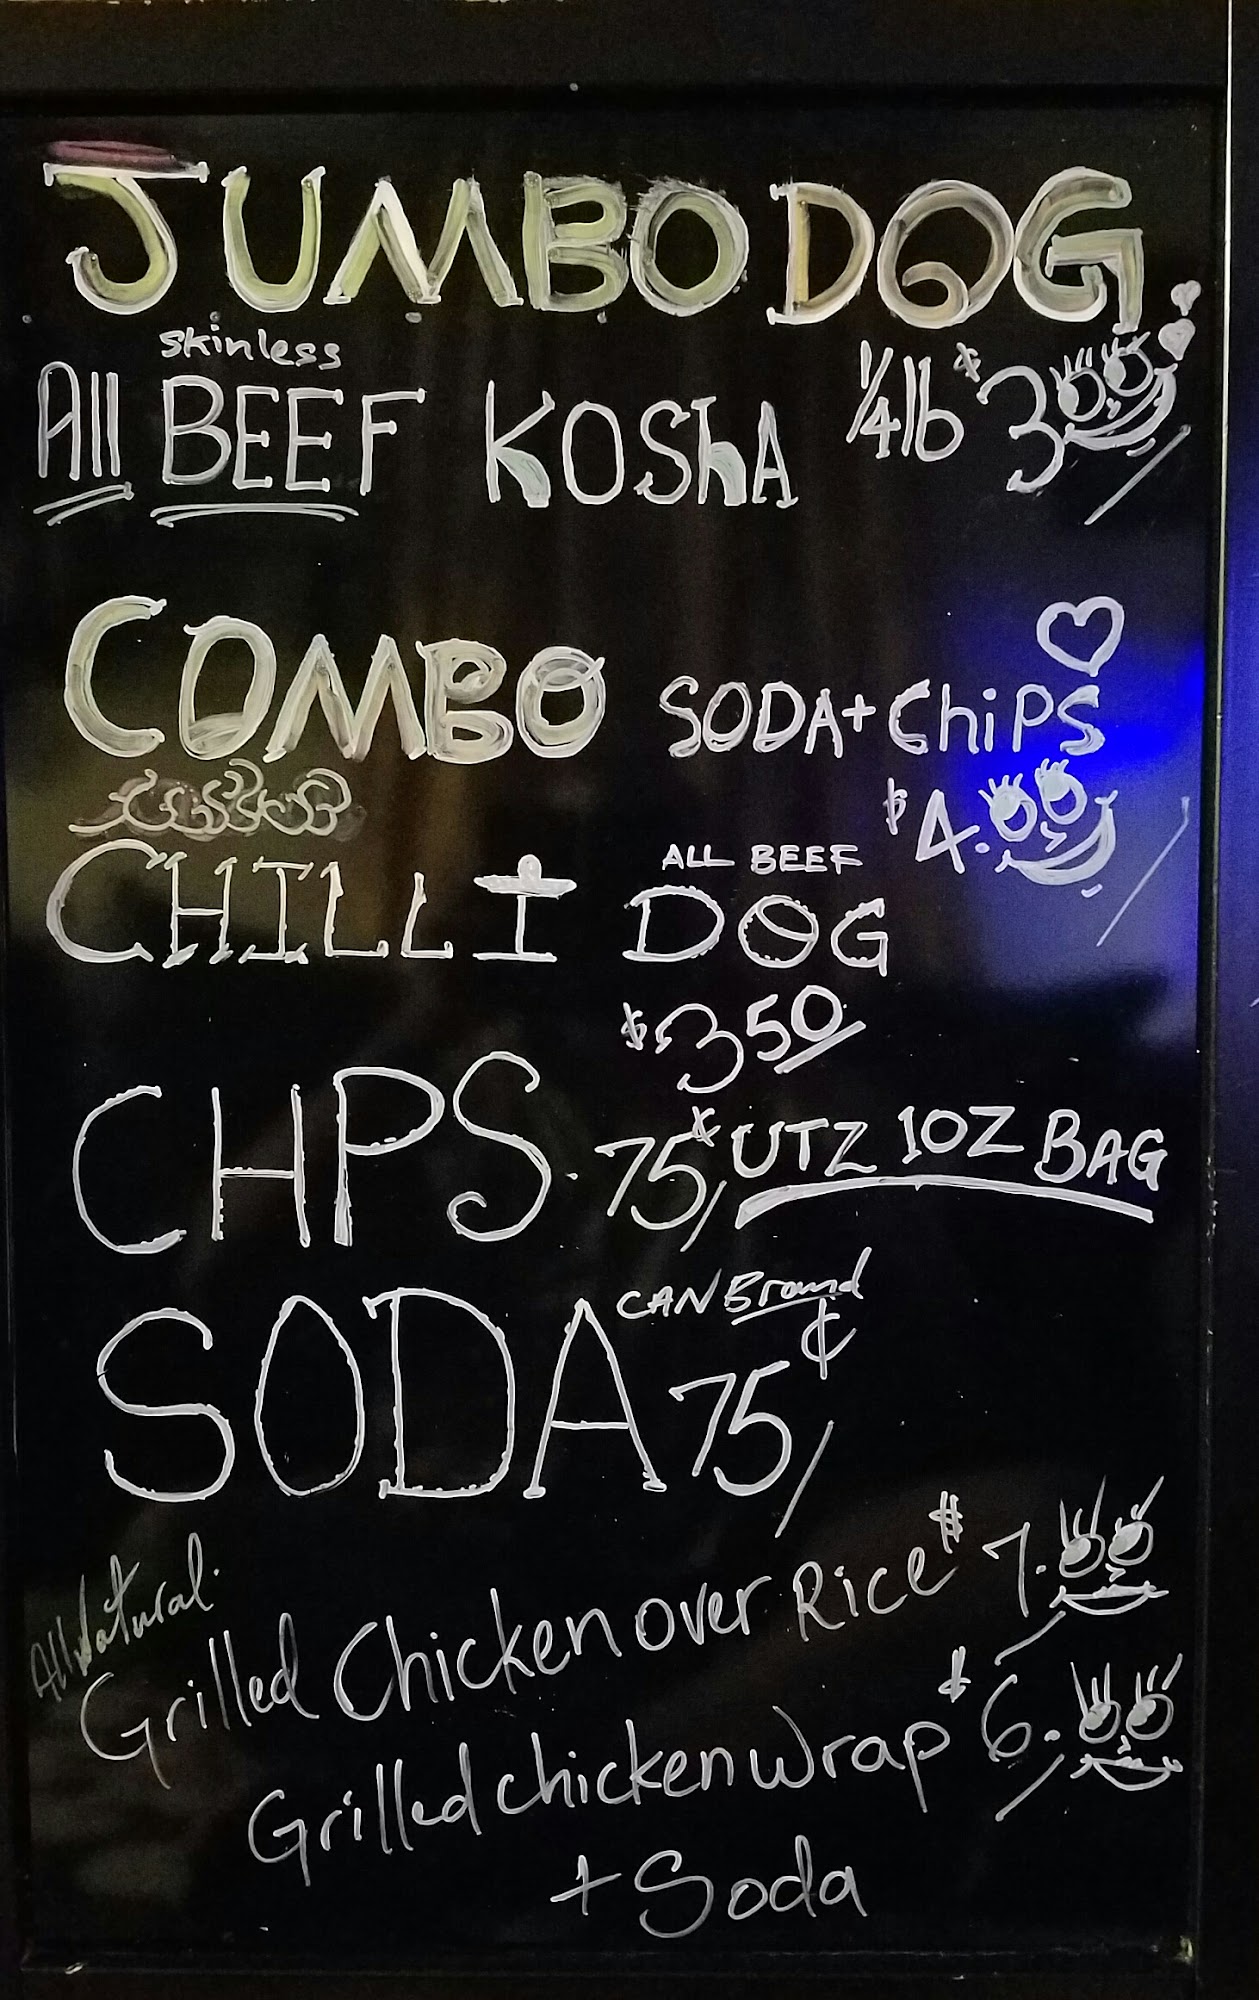 JUMBO DOG
skinless
All BEEF KOShA 1/4 lb $3.00
COMBO SODA + ChiPS
$4.00
ALL BEEF
CHILLI DOG
$3.50
CHPS. 75¢ UTZ 1OZ BAG
CAN Brand
SODA 75¢
All Natural.
Grilled Chicken over Rice $7.00
Grilled chicken wrap $6.00
+ Soda